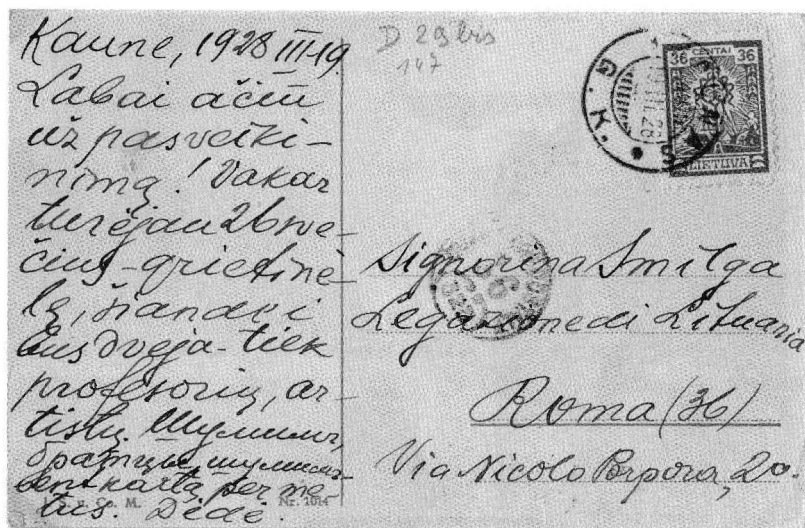 Kaune, 1928 III-19
Labai ačiū
už pasveiki-
nimą! Vakar
turėjau 26 sve-
čius - grietinė-
lę, šiandei
bus dveja-tiek
profesorių, ar-
tistų. Шумимъ,
братцы, шумимъ
bent kartą per me-
tus. Dėdė.
Co. M. Nr. 1014
D 29 bis
147
36 CENTAI 36
LIETUVA
G. K.
Signorina Smilga
Legazione di Lituania
Roma (36)
Via Nicolo Porpora, 20.